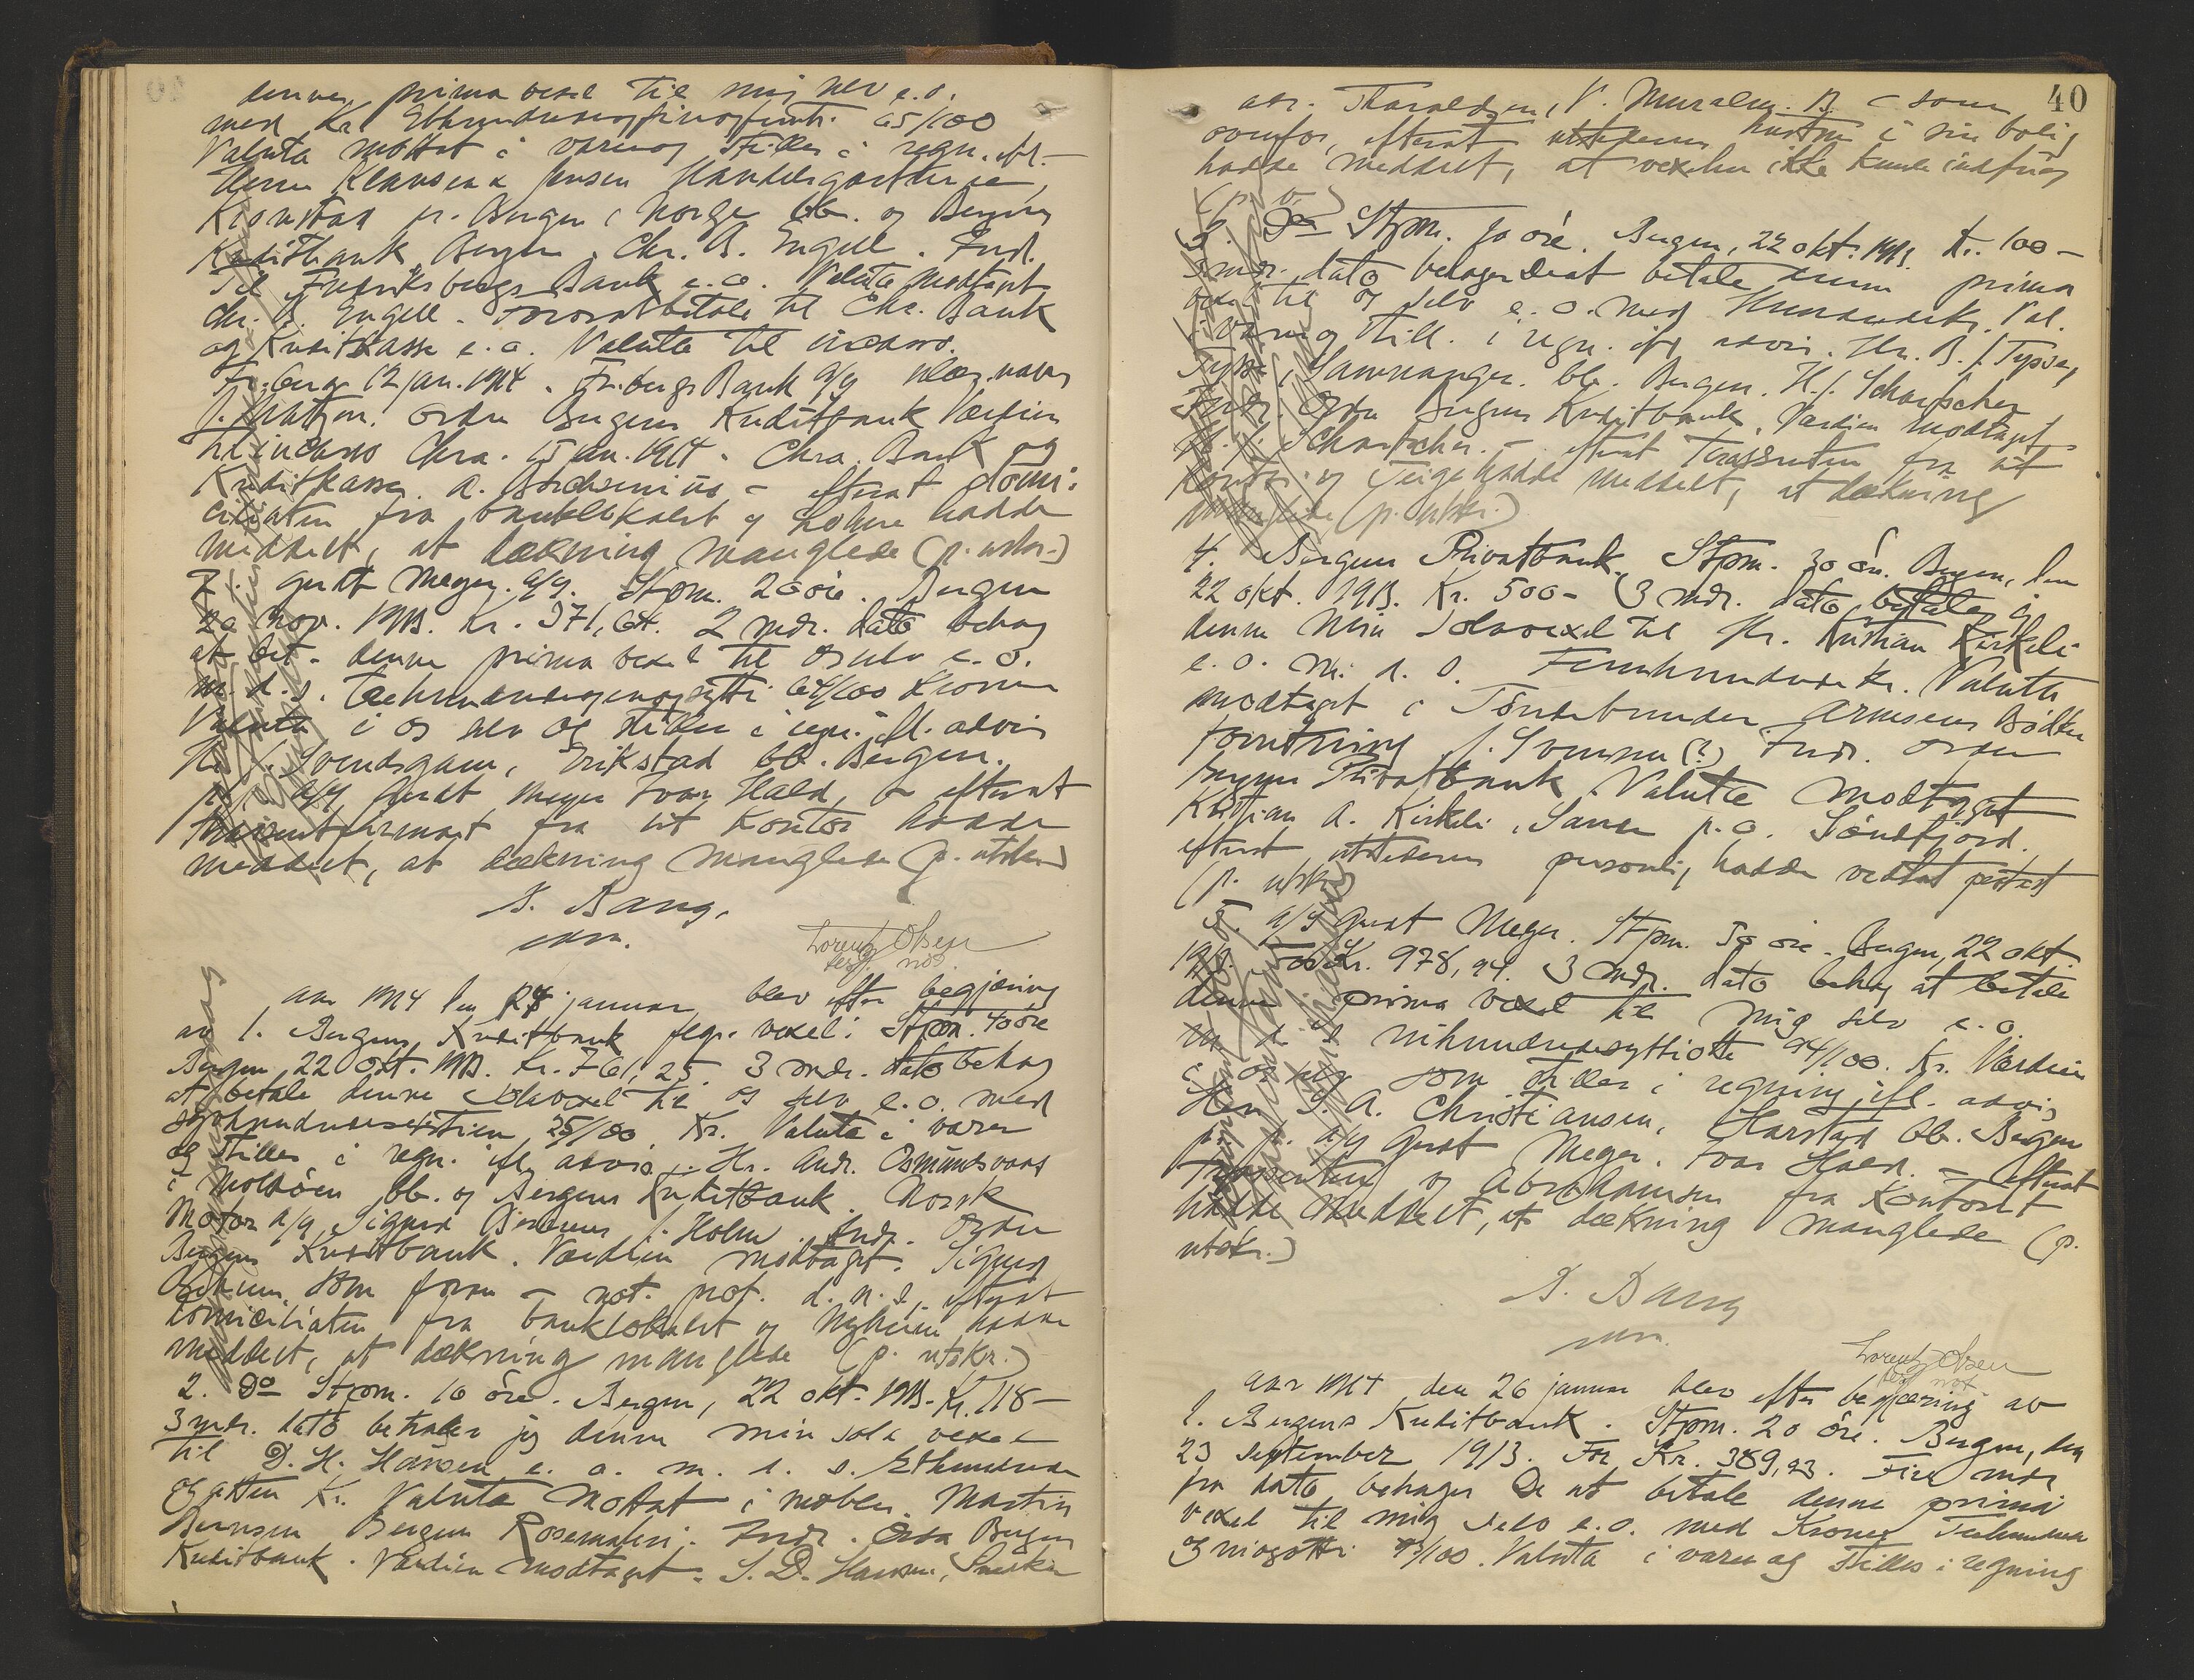 denne prima vexel til mig selv e.o.
med Kr. Ethundrede 65/100
Valuta mottat i varer og stilles i regn. ifl.
Herrer Klausen & Jensen Handelsgartnerie,
Kronstad pr. Bergen, Norge bb. og Bergens
Kreditbank Bergen. Chr. B. Engell. End.
Til Fredriksbergs Bank e.o. Valuta modtaget
Chr. B. Engell. betale til Chr. Bank
og Kreditkasse e.o. Valuta til incasso.
Fr.berg 12 jan. 1914. Fr.bergs Bank a/s
ordre Bergens Kreditbank Værdien
til incasso Chra. 15 jan. 1914. Chra. Bank og
Kreditkasse. A. – efterat domi-
ciliaten fra banklokalet og hadde
meddelt, at dækning manglede (p. utskr.)
7. Gerdt Meyer a/s. Stpm. 20 øre. Bergen
20 nov. 1913. Kr. 371,64. 2 mdr. dato behag
at bet. denne prima vexel til os selv e.o.
m. d. s. Trehundredeogenogsytti 64/100 Kroner
Valuta i os selv og stilles i regn. ifl. advis
Hr. J. Svendsgam, Erikstad bb. Bergen.
p.p. a/s Gerdt Meyer Ivar Hald, – efterat
fra sit kontor hadde
meddelt, at dækning manglede (p. utskr.)
B. Bang,
Lorentz Olsen
Aar 1914 den 24 januar blev efter begjæring
av 1. Bergens Kreditbank flgr. vexel: Stpm. 40 øre
Bergen 22 okt. 1913. Kr. 761,25. 3 mdr. dato behag
at betale denne Solavexel til os selv e.o. med
25/100 Kr. Valuta i varer
og stilles i regn. ifl. advis. Hr. Andr. Osmundsvaag
i Moldøen bb. og Bergens Kreditbank. Norsk
Motor a/s Sigurd J. Holm. End. Ordre
Bergens Kreditbank. Værdien modtaget. Sigurd
som foran – not. prot. d.n.s. efterat
domiciliaten fra banklokalet og hadde
meddelt, at dækning manglede (p. utskr.)
2. Do Stpm. 10 øre. Bergen, 22 okt. 1913. Kr. 118 –
3 mdr. dato betaler jeg denne min sola vexel
til D. H. Hansen e. o. m. d. s. Ethundrede
og atten Kr. Valuta mottat i møbler. Martin
Berntsen Bergens Rosemaleri. Endr. Ordre Bergens
Kreditbank. Værdien modtaget. S. D. Hansen, Snekker
40
adr. Tharaldsen, V. Muralm. 13 – som
ovenfor, efterat utstederens hustru i sin bolig
hadde meddelt, at vexelen ikke kunde indfries
3. Do Stpm. 10 øre. Bergen, 22 okt. 1913. Kr. 100 –
3 mdr. dato behager De at betale denne prima
vexel til os selv e. o. med Hundredekr. Val.
i varer og still. i regn. ifl. advis. Hr. B. J. Tysse,
Tysse, Samnanger. bb. Bergen. H. J. Scharfscher
Endr. Ordre Bergens Kreditbank. Værdien modtaget
H. J. Scharfscher. – efterat Trassenten fra sit
kontor og hadde meddelt, at dækning
manglede (p. utskr.)
4. Bergens Privatbank. Stpm. 30 øre. Bergen, den
22 okt. 1913. Kr. 500 – 3 mdr. dato betaler jeg
denne Min Solavexel til Hr. Kristian Kirkeli
e. o. m. d. s. Femhundrede kr. Valuta
modtaget i Tøndebunder Arnesens Bødker
forretning J. Svensen (?) Endr. Ordre
Bergens Privatbank Valuta modtaget
Kristian A. Kirkeli, Sande p.a. Søndfjord.
efterat utstederen personlig hadde vedtat protest
(p. utskr.)
5. a/s Gerdt Meyer. Stpm. 50 øre. Bergen, 22 okt.
1913. For Kr. 978,94. 3 mdr. dato behag at betale
denne prima vexel til mig selv e. o.
m. d. s. nihundredesyttiotte 94/100. Kr. Værdien
i os selv som stilles i regning ifl. advis
Herr S. A. Christiansen, Harstad bb. Bergen
p. p. a/s Gerdt Meyer. Ivar Hald. – efterat
Trassenten og Abrahamsen fra Kontoret
hadde meddelt, at dækning manglede (p.
utskr.)
B. Bang
Lorentz Olsen
Aar 1914 den 26 januar blev efter begjæring av
1. Bergens Kreditbank. Stpm. 20 øre. Bergen, den
23 september 1913. For Kr. 389,93. Fire mdr
fra dato behager De at betale denne prima
vexel til mig selv e.o. med Kroner Trehundrede
og niogotti 93/100. Valuta i varer og stilles i regning